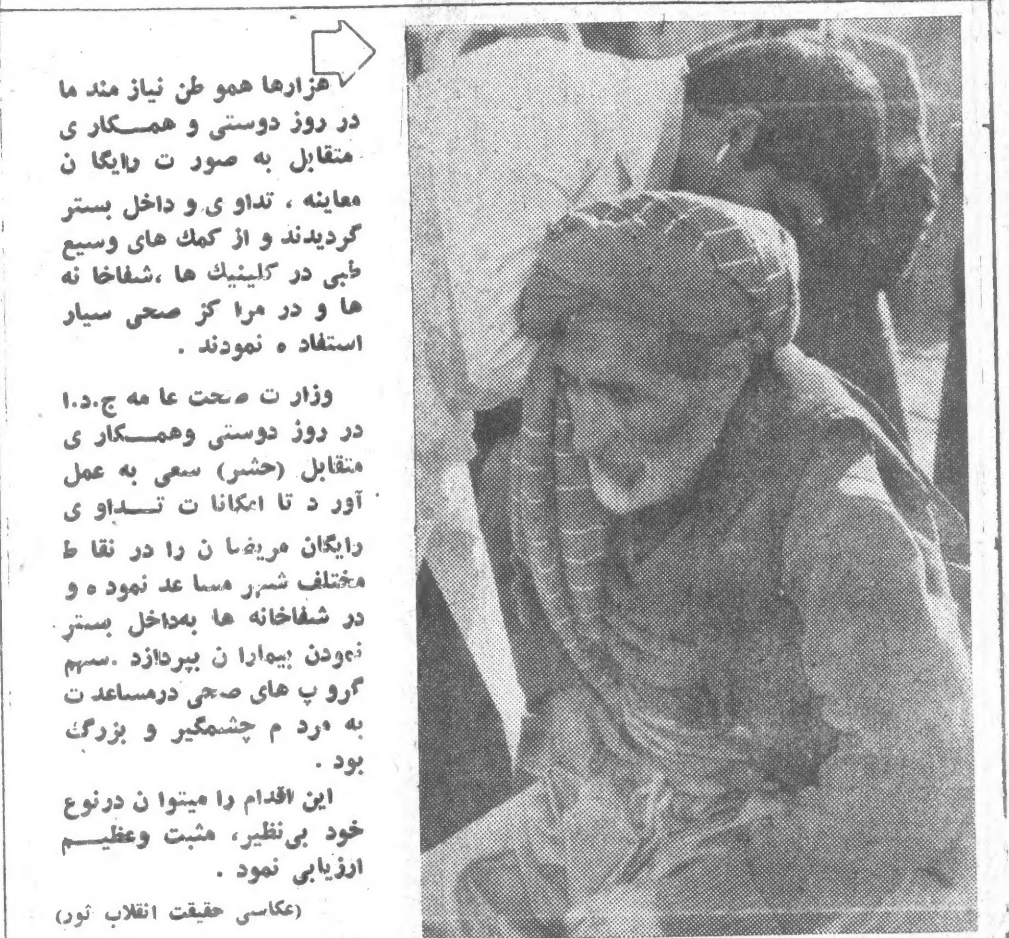 هزارها همو طن نیاز مند ما
در روز دوستی و همـــکار ی
متقابل به صور ت رایگا ن
معاینه ، تداو ی و داخل بستر
گردیدند و از کمك های وسیع
طبی در کلینیك ها ،شفاخا نه
ها و در مرا کز صحی سیار
استفاد ه نمودند .
وزار ت صحت عا مه ج.د.ا
در روز دوستی وهمـــکار ی
متقابل (حشر) سعی به عمل
آور د تا امکانا ت تـــداو ی
رایگان مریضا ن را در نقا ط
مختلف شهر مسا عد نمود ه و
در شفاخانه ها به‌داخل بستر
نمودن بیمارا ن بپردازد .سهم
گرو پ های صحی درمساعد ت
به مرد م چشمگیر و بزرگ
بود .
این اقدام را میتوا ن درنوع
خود بی‌نظیر، مثبت وعظیـــم
ارزیابی نمود .
(عکاسی حقیقت انقلاب ثور)